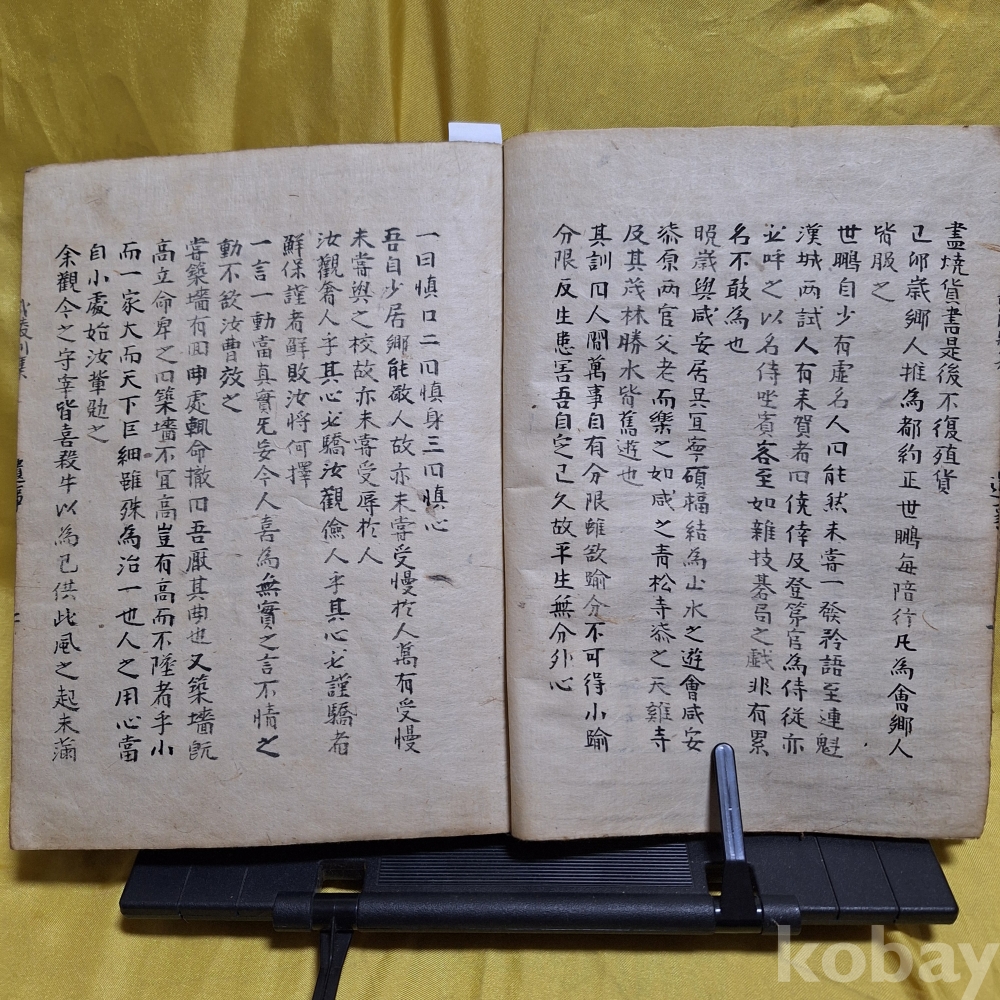 盡燒貨書是後不復殖貨
己卯歲鄉人推為都約正世鵬每陪行凡為會鄉人
皆服之
世鵬自少有虛名人曰能然未嘗一發矜語至連魁
漢城两試人有来賀者曰僥倖及登第官為侍從亦
必呼之以名侍坐賓客至如雜技碁局之戲非有累
名不敢為也
晩歲與咸安居具宜寧碩福結為山水之遊會咸安
柒原两官父老而樂之如咸之青松寺柒之天雞寺
及其茂林勝水皆舊遊也
其訓曰人間萬事自有分限雖欲踰分不可得小踰
分限反生患害吾自定已久故平生無分外心
一曰慎口二曰慎身三曰慎心
吾自少居鄉能敬人故亦未嘗受慢於人萬有受慢
未嘗與之校故亦未嘗受辱於人
汝觀奢人乎其心必驕汝觀儉人乎其心必謹驕者
鮮保謹者鮮敗汝將何擇
一言一動當真實先妄今人喜為無實之言不情之
動不欲汝曹效之
嘗築墻有回曲處輒命撤曰吾厭其曲也又築墻既
高立命卑之曰築墻不宜高豈有高而不墜者乎小
而一家大而天下巨細雖殊為治一也人之用心當
自小處始汝軰勉之
余觀今之守宰皆喜殺牛以為己供此風之起未滿
kobay